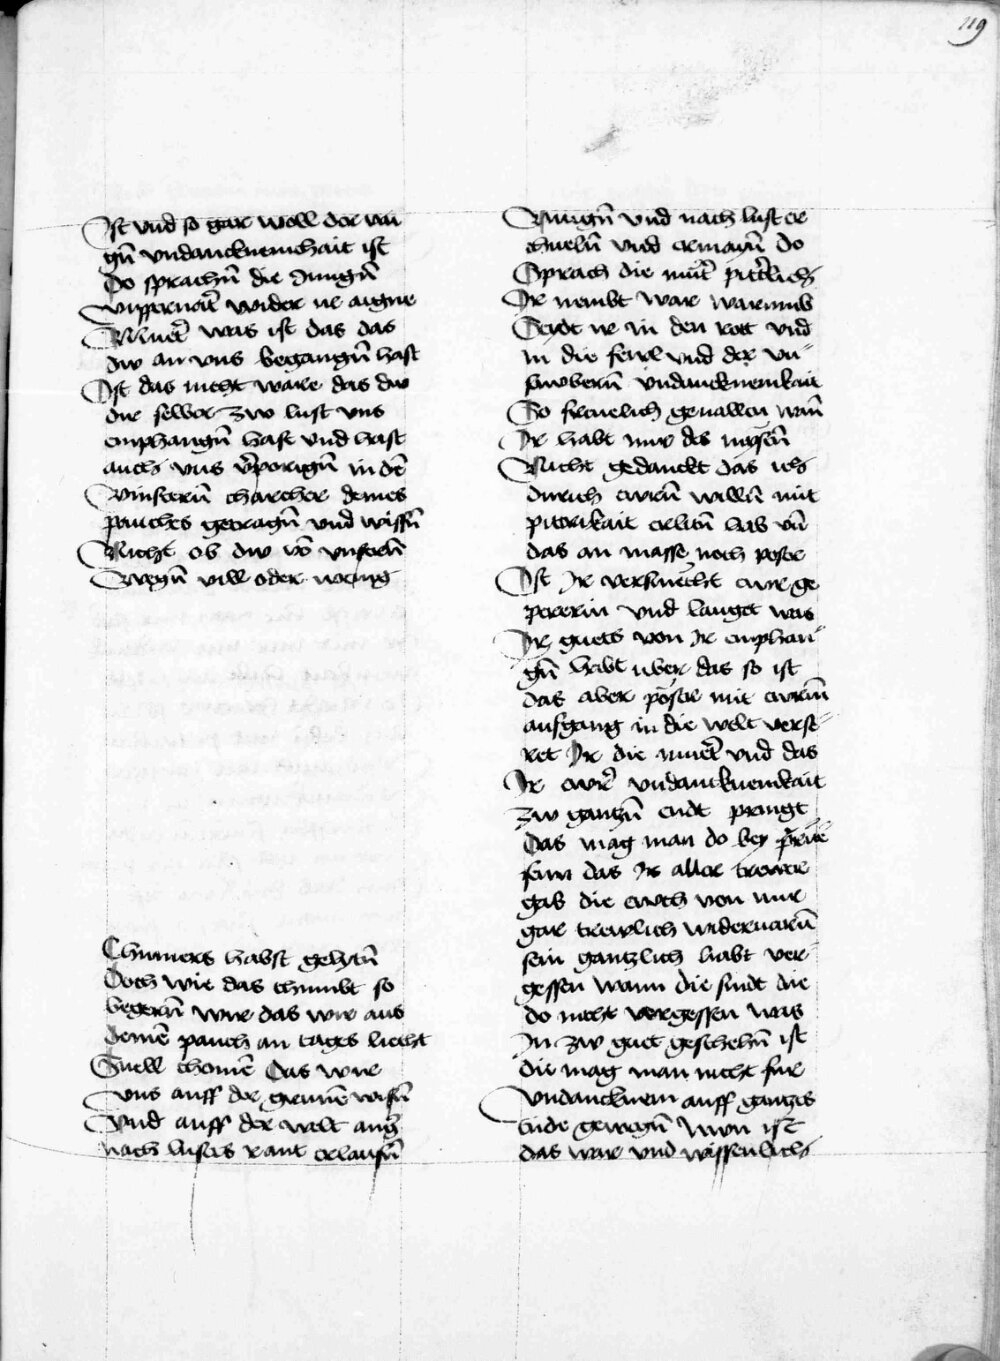 119
Ist vnd so gar woll der vn
gn̄ vndancknemchait ist
Do sprachn̄ die Jungn̄
vippernāt̄ wider ir aigne
Muet̄ was ist das das
dw an vns begangn̄ hast
Ist das nicht ware das dw
die selber zw lust vns
emphangn̄ hast vnd hast
auch vns v̄porign̄ in dē
vinstern̄ charcher deines
pauches getragn̄ vnd wissn̄
Nicht ob dw vō vnsern̄
Wegn̄ vill oder wenig
Chumers habst gelytn̄
Doch wie das chumbt so
begern̄ wir das wir aus
deinē pauch an tages liecht
Snell chomē Das wir
vns auff der gruenē wisn̄
vnd auff der welt anḡ
nach lustes rant erlaufn̄
Ringn̄ vnd nach lust er
chueln̄ vnd ermayn̄ do
Sprach die muet̄ pittl̄ich
Ir nembt war warumb
Seydt ir in den rott vnd
in die fewl vnd der vn
sawbern̄ vndancknemkait
So freuelich geuallen wan̄
Ir habt mir des nyesn̄
Nicht gedanckt das ich
durich ewrn̄ willn̄ mit
pittrikait erlitn̄ hab vn̄
das an masse noch poser
Ist Ir versmecht ewr ge
pererin vnd lauget was
Ir guets von Ir emphan
gn̄ habt vber das so ist
das aber pöser mit ewrm̄
ausgang in die welt verst
ret Ir die muet̄ vnd das
Ir ewr̄ vndancknemkait
zw gantzn̄ endt pringt
Das mag man do bey
sein das Ir aller trewer
gab die ewch von mir
gar trewlich wideruarn̄
sein gantzlich habt ver
gessen wann die sindt die
do nicht vergessen was
In zw guet geschehn̄ ist
die mag man nicht fur
vndancknem auff gantzes
ende gewegn̄ Nvn ist
das war vnd wissenlich